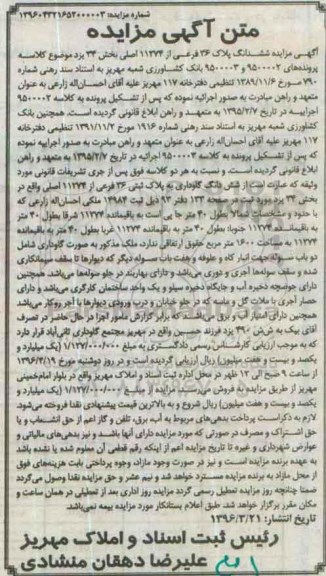 شماره مزایده: ۱۳۹۶۰۴۳۲۱۶۵۲۰۰۰۰۰۳
متن آگهی مزایده
آگهی مزایده ششدانگ پلاک ۳۶ فرعی از ۱۱۲۷۴ اصلی بخش ۳۴ یزد موضوع کلاسه
پرونده‌های ۹۵۰۰۰۰۲ و ۹۵۰۰۰۰۳ بانک کشاورزی شعبه مهریز به استناد سند رهنی شماره
۷۹۰ مورخ ۱۳۸۹/۱۱/۶ تنظیمی دفترخانه ۱۱۷ مهریز علیه آقای احسان‌اله زارعی به عنوان
متعهد و راهن مبادرت به صدور اجرائیه نموده که پس از تشکیل پرونده به کلاسه ۹۵۰۰۰۰۲
اجراییه در تاریخ ۱۳۹۵/۲/۷ به متعهد و راهن ابلاغ قانونی گردیده است. همچنین بانک
کشاورزی شعبه مهریز به استناد سند رهنی شماره ۱۹۱۶ مورخ ۱۳۹۱/۱۱/۲ تنظیمی دفترخانه
۱۱۷ مهریز علیه آقای احسان‌اله زارعی به عنوان متعهد و راهن مبادرت به صدور اجراییه نموده
که پس از تشکیل پرونده به کلاسه ۹۵۰۰۰۰۳ اجرائیه در تاریخ ۱۳۹۵/۲/۷ به متعهد و راهن
ابلاغ قانونی گردیده است. و نسبت به هر دو کلاسه فوق پس از جری تشریفات قانونی مورد
وثیقه که عبارت است از شش دانگ گاوداری به پلاک ثبتی ۳۶ فرعی از ۱۱۲۷۴ اصلی واقع در
بخش ۳۴ یزد مورد ثبت در صفحه ۱۳۳ دفتر ۹۲ ذیل ثبت ۱۴۹۸۴ ملکی احسان‌اله زارعی که
با حدود و مشخصات شمالا بطول ۴۰ متر جا پی است به باقیمانده ۱۱۲۷۴ شرقا بطول ۴۰ متر
به باقیمانده ۱۱۲۷۴ جنوبا: بطول ۴۰ متر به باقیمانده ۱۱۲۷۴ غربا بطول ۴۰ متر به باقیمانده
۱۱۲۷۴ به مساحت ۱۶۰۰ متر مربع حقوق ارتفاقی ندارد، ملک مذکور به صورت گاوداری شامل
دو باب سوله جهت انبار کاه و علوفه و هفت باب سوله دیگر که دیوارها تا سقف سیمانکاری
شده و سقف سوله‌ها آجری و دوری می‌باشد و دارای بهاربند در جلو سوله‌ها می‌باشد. همچنین
دارای حوضچه ذخیره آب و جایگاه ذخیره سیلو و یک واحد ساختمان کارگری می‌باشد و دارای
حصار آجری با ملات گل و ماسه که در جلو خیابان و درب ورودی دیوارها با آجر روکار می‌باشد
همچنین دارای امتیاز آب و برق می‌باشد که برابر گزارش مامور اجرا در حال حاضر در تصرف
آقای بیک به ش‌ش ۳۹۰ یزد فرزند حسین واقع در مهریز مجتمع گاوداری ثانی‌آباد قرار دارد
که به موجب ارزیابی کارشناس رسمی دادگستری به مبلغ ۱/۱۲۷/۰۰۰/۰۰۰ (یک میلیارد و
یکصد و بیست و هفت میلیون) ریال ارزیابی گردیده است و در روز دوشنبه مورخ ۱۳۹۶/۴/۱۹
از ساعت ۹ صبح الی ۱۲ ظهر در محل اداره ثبت اسناد و املاک مهریز واقع در بلوار امام‌خمینی
مهریز از طریق مزایده به فروش می‌رسد. مزایده از مبلغ ۱/۱۲۷/۰۰۰/۰۰۰ (یک میلیارد و
یکصد و بیست و هفت میلیون) ریال شروع و به بالاترین قیمت پیشنهادی نقدا فروخته می‌شود.
لازم به ذکر است پرداخت بدهی‌های مربوط به آب، برق، تلفن و گاز اعم از حق انشعاب و یا
حق اشتراک و مصرف در صورتی که مورد مزایده دارای آنها باشد و نیز بدهی‌های مالیاتی و
عوارض شهرداری و غیره تا تاریخ مزایده اعم از اینکه رقم قطعی آن معلوم شده یا نشده باشد
به عهده برنده مزایده است و نیز در صورت وجود مازاد، وجوه پرداختی بابت هزینه‌های فوق
از محل مازاد به برنده مزایده مسترد خواهد شد و نیم عشر و حق مزایده نقدا وصول می‌گردد
ضمنا چنانچه روز مزایده تعطیل رسمی گردد مزایده روز اداری بعد از تعطیلی در همان ساعت و
مکان مقرر برگزار خواهد شد. طبق اعلام بستانکار مورد مزایده بیمه نمی‌باشد.
تاریخ انتشار: ۱۳۹۶/۳/۲۱
رئیس ثبت اسناد و املاک مهریز
علیرضا دهقان منشادی